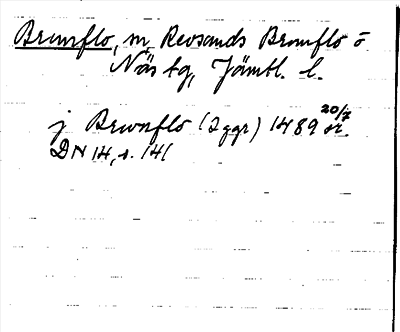 Brunflo, sn, Revsunds Brunflo o
Näs tg, Jämtl. l.
j Brwnflo (2 ggr) 1489 20/7 or.
DN 14, s. 141